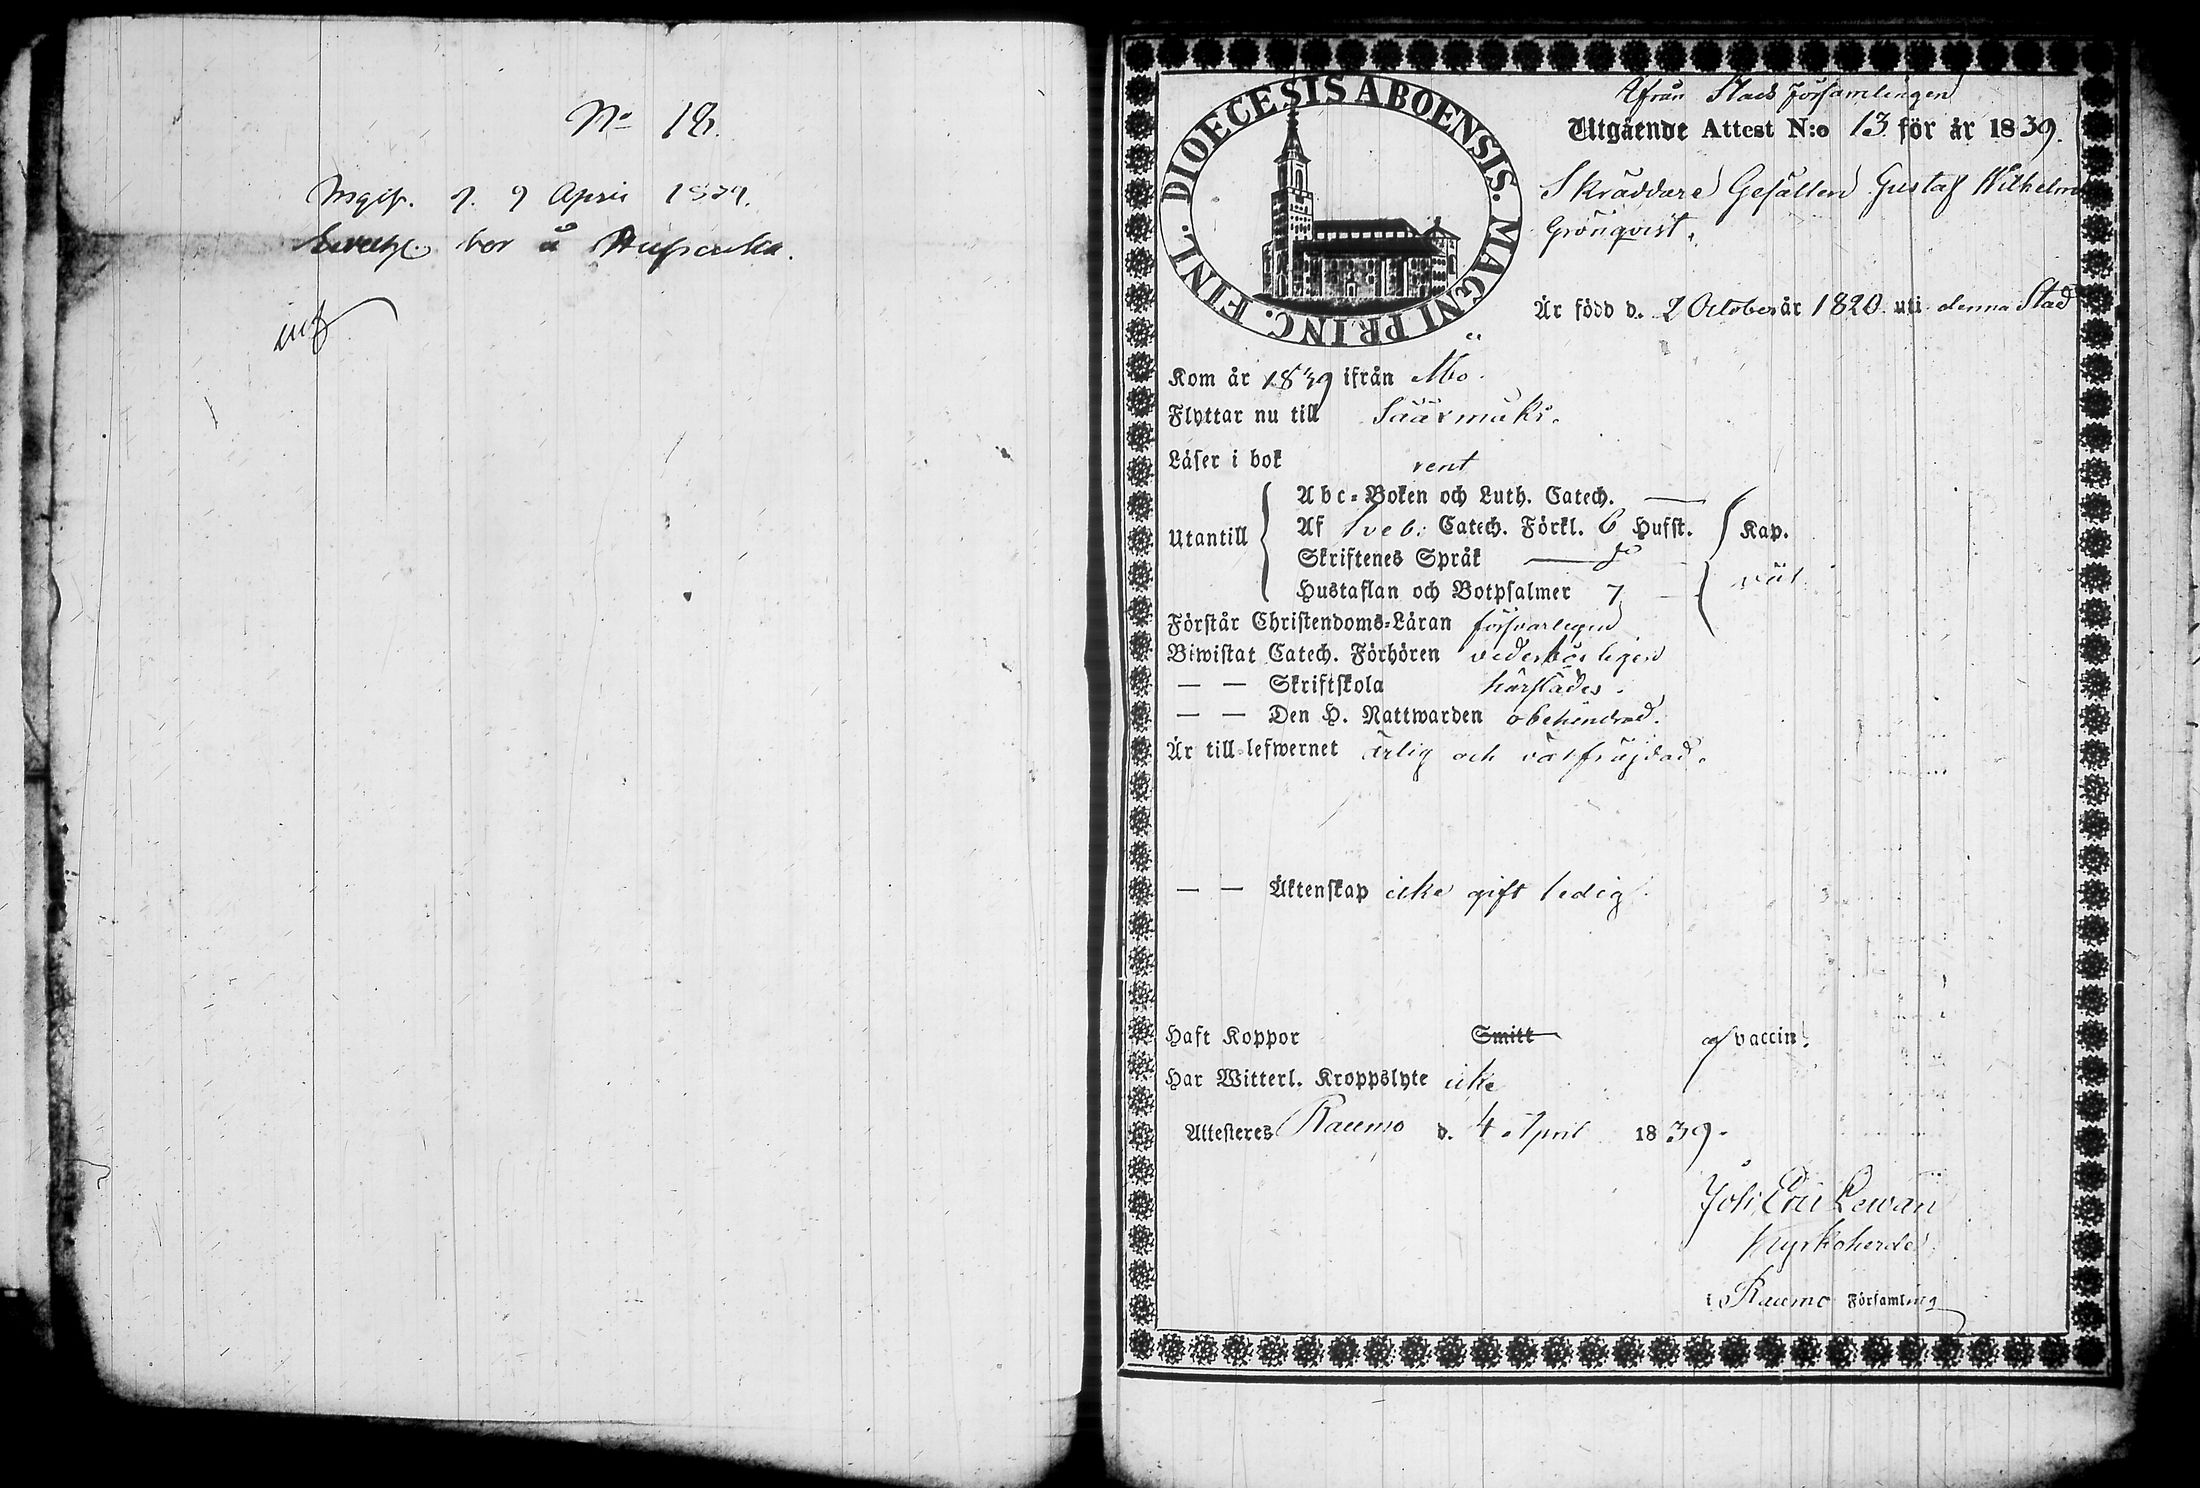 No 18.
d. 9 April 1839.
bor å
DIOECESIS ABOENSIS. MAGNI PRINC. FINL.
Ifrån Stads församlingen
Utgående Attest N:o 13 för år 1839.
Skräddare Gesällen Gustaf Wilhelm
Grönqvist.
Är född d. 2 October år 1820 uti denna Stad
Kom år 1839 ifrån Åbo.
Flyttar nu till Sääxmäki.
Läser i bok rent
Utantill
Abc-Boken och Luth. Catech. —
Af Sveb: Catech. Förkl. 6 Hufst.
Skriftenes Språk —
Hustaflan och Botpsalmer 7
Kap.
väl
Förstår Christendoms-Läran försvarligen
Biwistat Catech. Förhören vederbörligen
— — Skriftskola härstädes.
— — Den H. Nattwarden obehindrad.
Är till lefwernet ärlig och välfräjdad.
— — Äktenskap icke gift ledig
Haft Koppor Smitt af vaccin.
Har Witterl. Kroppslyte icke
Attesteres Raumo d. 4 April 1839.
Joh. Eric Lewan
Kyrkoherde
i Raumo Församling